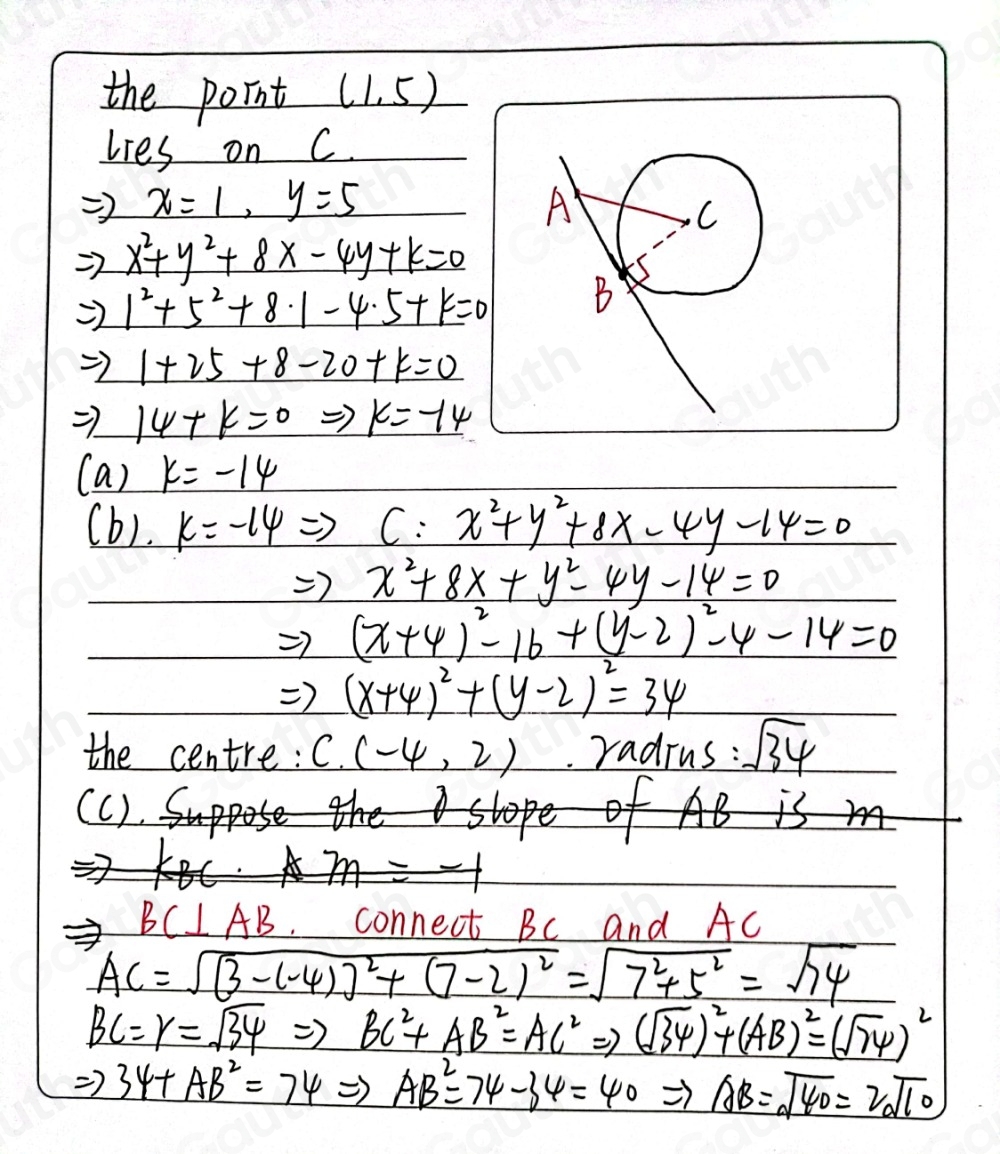 the point (1,5)
lies on C.
⇒ x=1, y=5
⇒ x²+y²+8x-4y+k=0
⇒ 1²+5²+8·1-4·5+k=0
⇒ 1+25+8-20+k=0
⇒ 14+k=0 ⇒ k=-14
A
C
B
(a) k=-14
(b). k=-14 ⇒ C: x²+y²+8x-4y-14=0
⇒ x²+8x+y²-4y-14=0
⇒ (x+4)²-16+(y-2)²-4-14=0
⇒ (x+4)²+(y-2)²=34
the centre: C.(-4, 2). radius: √34
(c). Suppose the slope of AB is m
⇒ k_BC · m = -1
⇒ BC⊥AB. connect BC and AC
AC=√[3-(-4)]²+(7-2)² = √7²+5² = √74
BC=r=√34 ⇒ BC²+AB²=AC² ⇒ (√34)²+(AB)²=(√74)²
⇒ 34+AB²=74 ⇒ AB²=74-34=40 ⇒ AB=√40=2√10
Gauth